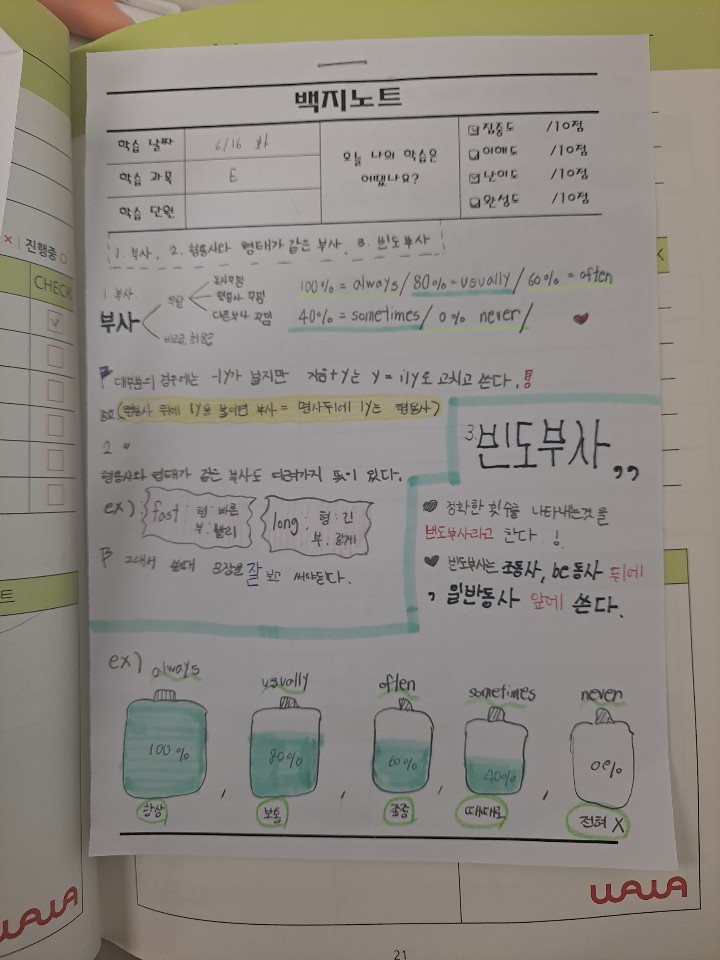 백지노트
학습 날짜 6/16 화
학습 과목 E
학습 단원
오늘 나의 학습은
어땠나요?
집중도 /10점
이해도 /10점
난이도 /10점
완성도 /10점
× | 진행중 ○
CHECK
1. 부사, 2. 형용사와 형태가 같은 부사, 3. 빈도부사
1 부사
부사
동사 꾸밈
형용사 꾸밈
다른부사 꾸밈
100% = always / 80% = usually / 60% = often
40% = sometimes / 0% never /
대부분의 경우에는 -ly가 붙지만 자음+y는 y = ily로 고치고 쓴다.
(형용사 뒤에 ly을 붙이면 부사 = 명사뒤에 ly는 형용사)
2 "
형용사와 형태가 같은 부사도 여러가지 뜻이 있다.
ex)
fast : 형 : 빠른
부 : 빨리
long : 형 : 긴
부 : 길게
그래서 쓸때 문장을 잘 보고 써야된다.
3. 빈도부사,,
정확한 횟수을 나타내는것을
빈도부사라고 한다. !
빈도부사는 조동사, be동사 뒤에
, 일반동사 앞에 쓴다.
ex)
always usually often sometimes never
100% 80% 60% 40% 0%
항상 , 보통 , 종종 , 때때로 , 전혀 X
WAWA
WAWA
21